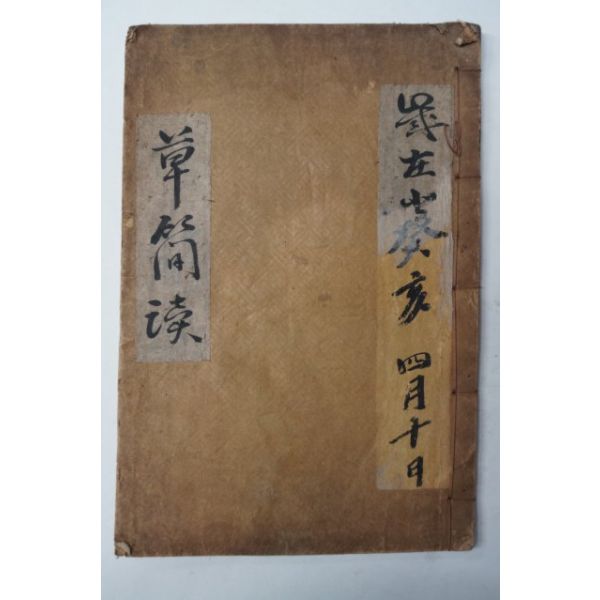 歲在癸亥 四月十日
草簡讀